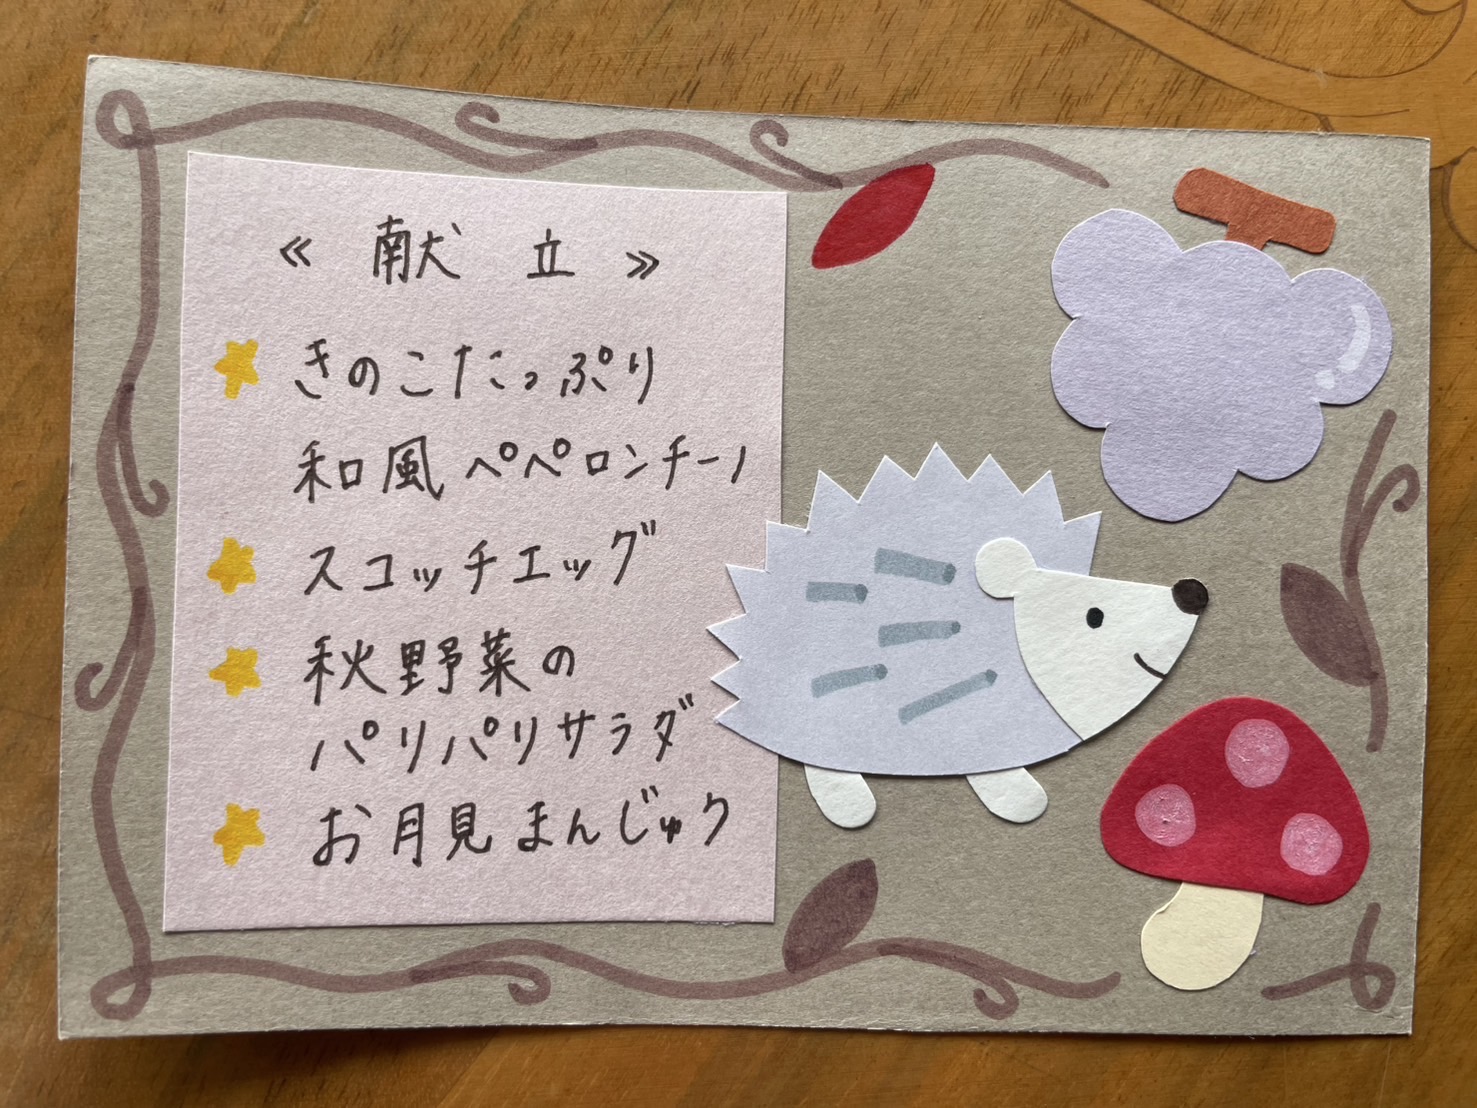 《 献 立 》
きのこたっぷり
和風ペペロンチーノ
スコッチエッグ
秋野菜の
パリパリサラダ
お月見まんじゅう